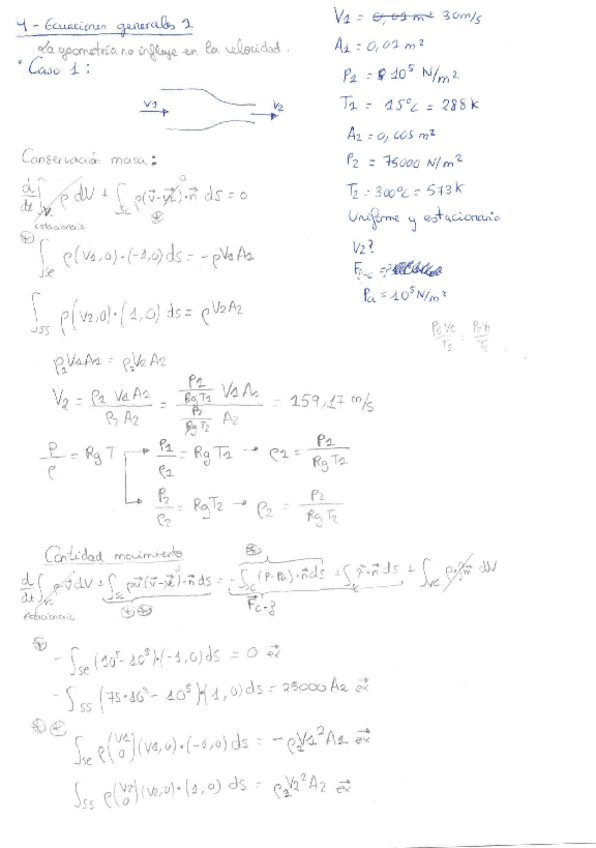 4 - Ecuaciones generales 1
La geometría no influye en la velocidad.
* Caso 1:
V1 → V2 →
V1 = 30 m/s
A1 = 0,01 m²
P1 = 10⁵ N/m²
T1 = 15°C = 288 K
A2 = 0,005 m²
P2 = 75000 N/m²
T2 = 300°C = 573 K
Uniforme y estacionario
V2?
Pa = 10⁵ N/m²
Conservación masa:
d/dt ∫ ρ dV + ∫Sc ρ(v⃗ - v⃗c)·n⃗ ds = 0
estacionario
∫Se ρ(V1,0)·(-1,0) ds = -ρV1A1
∫Ss ρ(V2,0)·(1,0) ds = ρV2A2
ρ1V1A1 = ρ2V2A2
V2 = ρ1 V1 A1 / ρ2 A2 = (P1/RgT1) V1A1 / (P2/RgT2) A2 = 159,17 m/s
P/ρ = RgT → P1/ρ1 = RgT1 → ρ1 = P1/RgT1
→ P2/ρ2 = RgT2 → ρ2 = P2/RgT2
Cantidad movimiento
d/dt ∫Vc ρ v⃗ dV + ∫Sc ρv⃗(v⃗ - v⃗c)·n⃗ ds = -∫Sc (P-Pa)·n⃗ ds + ∫ τ·n⃗ ds + ∫Vc ρ dV
estacionario
F⃗c-?
-∫Se (10⁵-10⁵)·(-1,0) ds = 0 e⃗x
-∫Ss (75·10³ - 10⁵)·(1,0) ds = 25000 A2 e⃗x
∫Se ρ(V1 0)(V1,0)·(-1,0) ds = -ρ1V1²A1 e⃗x
∫Ss ρ(V2 0)(V2,0)·(1,0) ds = ρ2V2²A2 e⃗x